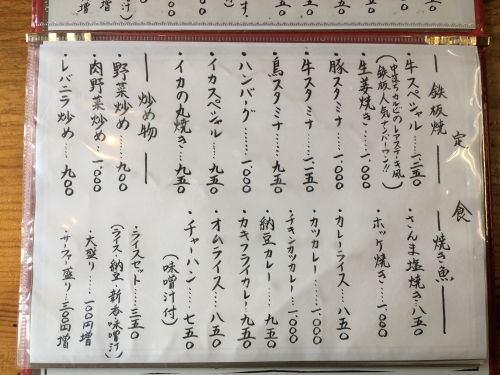 定食
— 鉄板焼 —
・牛スペシャル……一、二五〇
(中落ちカルビのレアステーキ風
鉄板人気ナンバーワン!!)
・生姜焼き……一、〇〇〇
・豚スタミナ……一、〇〇〇
・牛スタミナ……一、二五〇
・鳥スタミナ……九五〇
・ハンバーグ……一、〇〇〇
・イカスペシャル……九五〇
・イカの丸焼き……九五〇
— 炒め物 —
・野菜炒め……九〇〇
・肉野菜炒め……一、〇〇〇
・レバニラ炒め……九〇〇
— 焼き魚 —
・さんま塩焼き……八五〇
・ホッケ焼き……一、〇〇〇
・カレーライス……八五〇
・カツカレー……一、〇〇〇
・チキンカツカレー……一、〇〇〇
・納豆カレー……九五〇
・カキフライカレー……九五〇
・オムライス……八五〇
・チャーハン……七五〇
(味噌汁付)
・ライスセット……三五〇
(ライス・納豆・新香・味噌汁)
・大盛り……一〇〇円増
・サーファー盛り……三〇〇円増